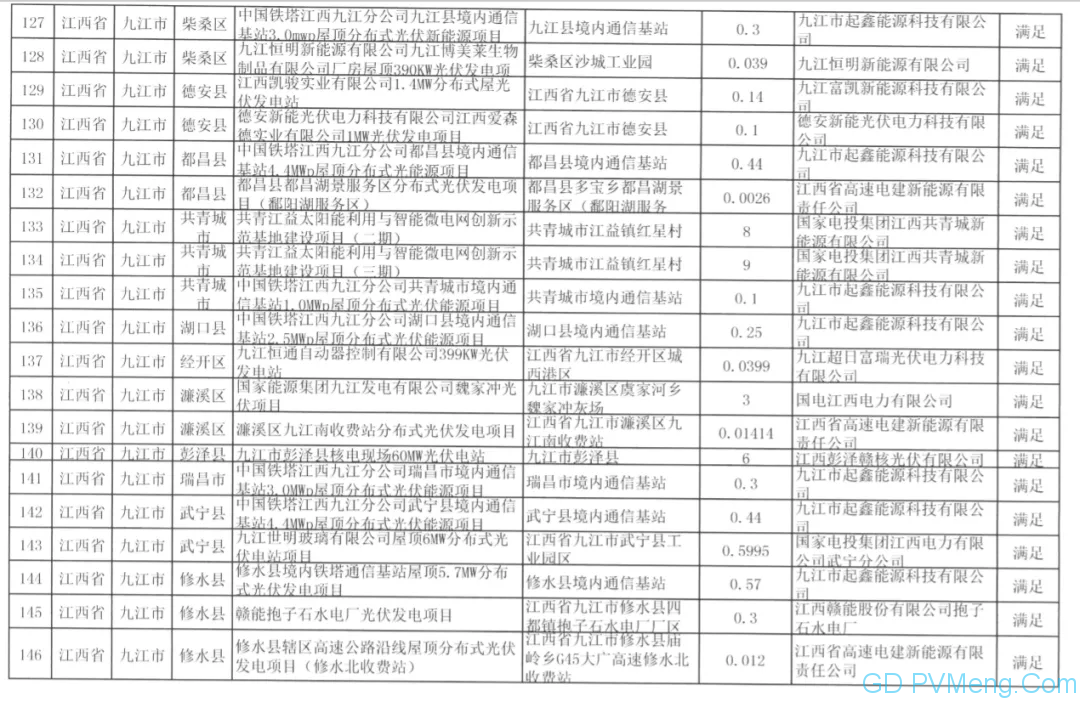 127 江西省 九江市 柴桑区 中国铁塔江西九江分公司九江县境内通信 九江县境内通信基站 0.3 九江市起鑫能源科技有限公 满足
基站3.0mwp屋顶分布式光伏新能源项目 司
128 江西省 九江市 柴桑区 九江恒明新能源有限公司九江博美莱生物 柴桑区沙城工业园 0.039 九江恒明新能源有限公司 满足
制品有限公司厂房屋顶390KW光伏发电项
129 江西省 九江市 德安县 江西凯骏实业有限公司1.4MW分布式屋光 江西省九江市德安县 0.14 九江富凯新能源科技有限公 满足
伏发电站 司
130 江西省 九江市 德安县 德安新能光伏电力科技有限公司江西爱森 江西省九江市德安县 0.1 德安新能光伏电力科技有限 满足
德实业有限公司1MW光伏发电项目 公司
131 江西省 九江市 都昌县 中国铁塔江西九江分公司都昌县境内通信 都昌县境内通信基站 0.44 九江市起鑫能源科技有限公 满足
基站4.4MWp屋顶分布式光能源项目 司
132 江西省 九江市 都昌县 都昌县都昌湖景服务区分布式光伏发电项 都昌县多宝乡都昌湖景 0.0026 江西省高速电建新能源有限 满足
目（鄱阳湖服务区） 服务区（鄱阳湖服务 责任公司
133 江西省 九江市 共青城 共青江益太阳能利用与智能微电网创新示 共青城市江益镇红星村 8 国家电投集团江西共青城新 满足
市 范基地建设项目（二期） 能源有限公司
134 江西省 九江市 共青城 共青江益太阳能利用与智能微电网创新示 共青城市江益镇红星村 9 国家电投集团江西共青城新 满足
市 范基地建设项目（三期） 能源有限公司
135 江西省 九江市 共青城 中国铁塔江西九江分公司共青城市境内通 共青城市境内通信基站 0.1 九江市起鑫能源科技有限公 满足
市 信基站1.0MWp屋顶分布式光伏能源项目 司
136 江西省 九江市 湖口县 中国铁塔江西九江分公司湖口县境内通信 湖口县境内通信基站 0.25 九江市起鑫能源科技有限公 满足
基站2.5MWp屋顶分布式光伏能源项目 司
137 江西省 九江市 经开区 九江恒通自动器控制有限公司399KW光伏 江西省九江市经开区城 0.0399 九江超日富瑞光伏电力科技 满足
发电站 西港区 有限公司
138 江西省 九江市 濂溪区 国家能源集团九江发电有限公司魏家冲光 九江市濂溪区虞家河乡 3 国电江西电力有限公司 满足
伏项目 魏家冲灰场
139 江西省 九江市 濂溪区 濂溪区九江南收费站分布式光伏发电项目 江西省九江市濂溪区九 0.01414 江西省高速电建新能源有限 满足
江南收费站 责任公司
140 江西省 九江市 彭泽县 九江市彭泽县核电现场60MW光伏电站 九江市彭泽县 6 江西彭泽赣核光伏有限公司 满足
141 江西省 九江市 瑞昌市 中国铁塔江西九江分公司瑞昌市境内通信 瑞昌市境内通信基站 0.3 九江市起鑫能源科技有限公 满足
基站3.0MWp屋顶分布式光伏能源项目 司
142 江西省 九江市 武宁县 中国铁塔江西九江分公司武宁县境内通信 武宁县境内通信基站 0.44 九江市起鑫能源科技有限公 满足
基站4.4MWp屋顶分布式光伏能源项目 司
143 江西省 九江市 武宁县 九江世明玻璃有限公司屋顶6MW分布式光 江西省九江市武宁县工 0.5995 国家电投集团江西电力有限 满足
伏电站项目 业园区 公司武宁分公司
144 江西省 九江市 修水县 修水县境内铁塔通信基站屋顶5.7MW分布 修水县境内通信基站 0.57 九江市起鑫能源科技有限公 满足
式光伏发电项目 司
145 江西省 九江市 修水县 赣能抱子石水电厂光伏发电项目 江西省九江市修水县四 0.3 江西赣能股份有限公司抱子 满足
都镇抱子石水电厂厂区 石水电厂
146 江西省 九江市 修水县 修水县辖区高速公路沿线屋顶分布式光伏 江西省九江市修水县庙 0.012 江西省高速电建新能源有限 满足
发电项目（修水北收费站） 岭乡G45大广高速修水北 责任公司
收费站
GD PVMeng.Com